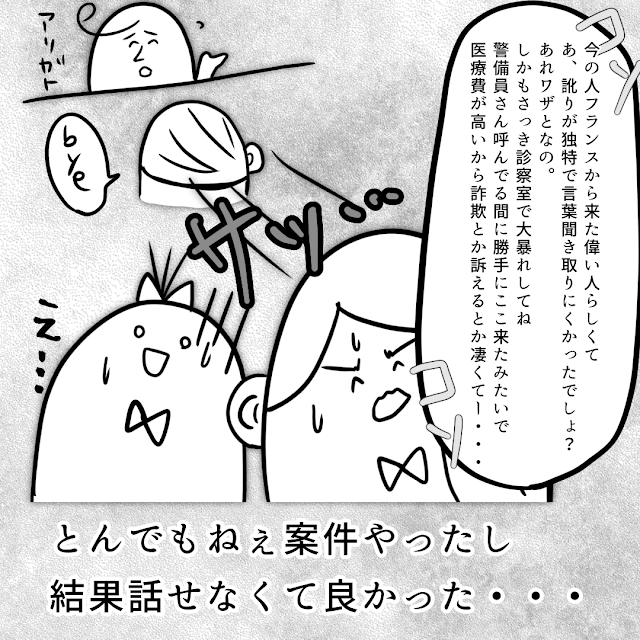 コソッ
今の人フランスから来た偉い人らしくて
あ、訛りが独特で言葉聞き取りにくかったでしょ？
あれワザとなの。
しかもさっき診察室で大暴れしてね
警備員さん呼んでる間に勝手にここ来たみたいで
医療費が高いから詐欺とか訴えるとか凄くてー・・・
コソッ
アリガト
bye
サッ・・・
え・・・
とんでもねぇ案件やったし
結果話せなくて良かった・・・